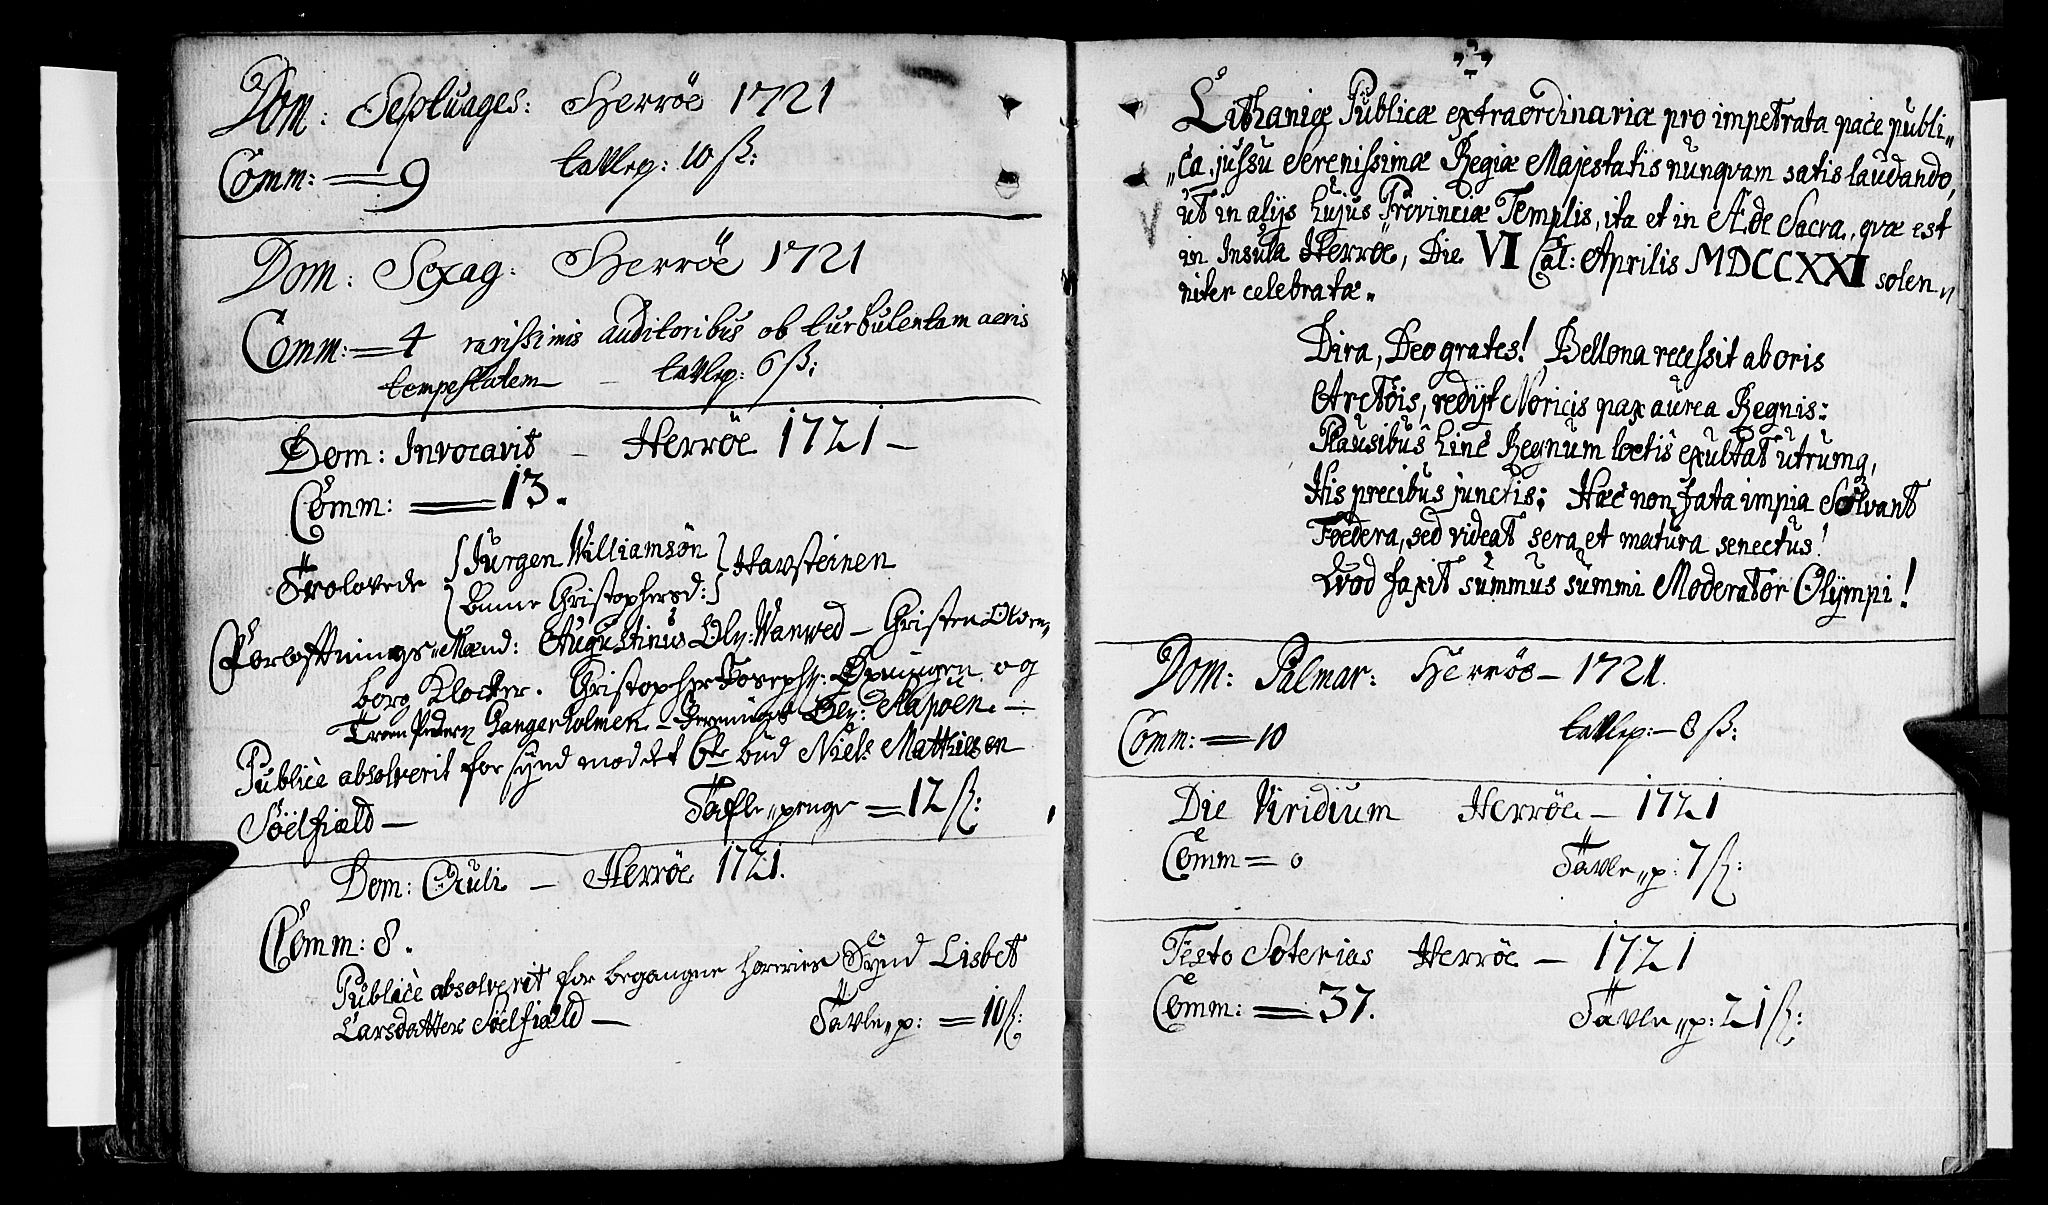 Dom: Septuages: Herröe 1721
Comm: = 9 tavlep: 10 ß:
Dom: Sexag: Herröe 1721
Comm: = 4 rarissimis auditoribus ob turbulentam aeris
tempestatem – tavlep: 6 ß:
Dom: Invocavit – Herröe 1721 –
Comm: = 13.
Jürgen Williamsøn
Trolovede Havsteinen
Christophersd:
Forloftnings Mænd: Augustinus Ols: Wanwed – Christen
borg Klocker. Christopher Josephs: og
Gangerholmen –
Publicè absolverit for synd mod det 6te bud Niels Mathiesen
Söelfiæld – Tafle„penge = 12 ß:
Dom: Oculi – Herröe 1721.
Comm: 8.
Publicè absolverit for begangne horeries Synd Lisbet
Larsdatter Söelfiæld – Tavle„p: = 10 ß:
Lithaniæ Publicæ extraordinariæ pro impetrata pace publi„
„ca, jussu Serenissimæ Regiæ Majestatis nunqvam satis laudando,
ut in alijs hujus Provinciæ Templis, ita et in Æde Sacra, qvæ est
in Insula Herröe, Die VI Cal: Aprilis MDCCXXI solen„
niter celebratæ.
Dira, Deo grates! Bellona recessit ab oris
Arctöis, redijt Noricis pax aurea Regnis:
Plausibus hinc Regnum lætis exultat utrumq,
His precibus junctis: Hæc non fata impia Solvant
Foedera, sed videat sera et matura senectus!
Qvod faxit summus summi Moderator Olÿmpi!
Dom: Palmar: Herröe – 1721.
Comm: = 10 tavlep: – 8 ß:
Die Viridium Herröe – 1721
Comm = 0 Tavle„p: 7 ß:
Festo Soterias Herröe – 1721
Comm: = 37. Tavle„p: 21 ß: